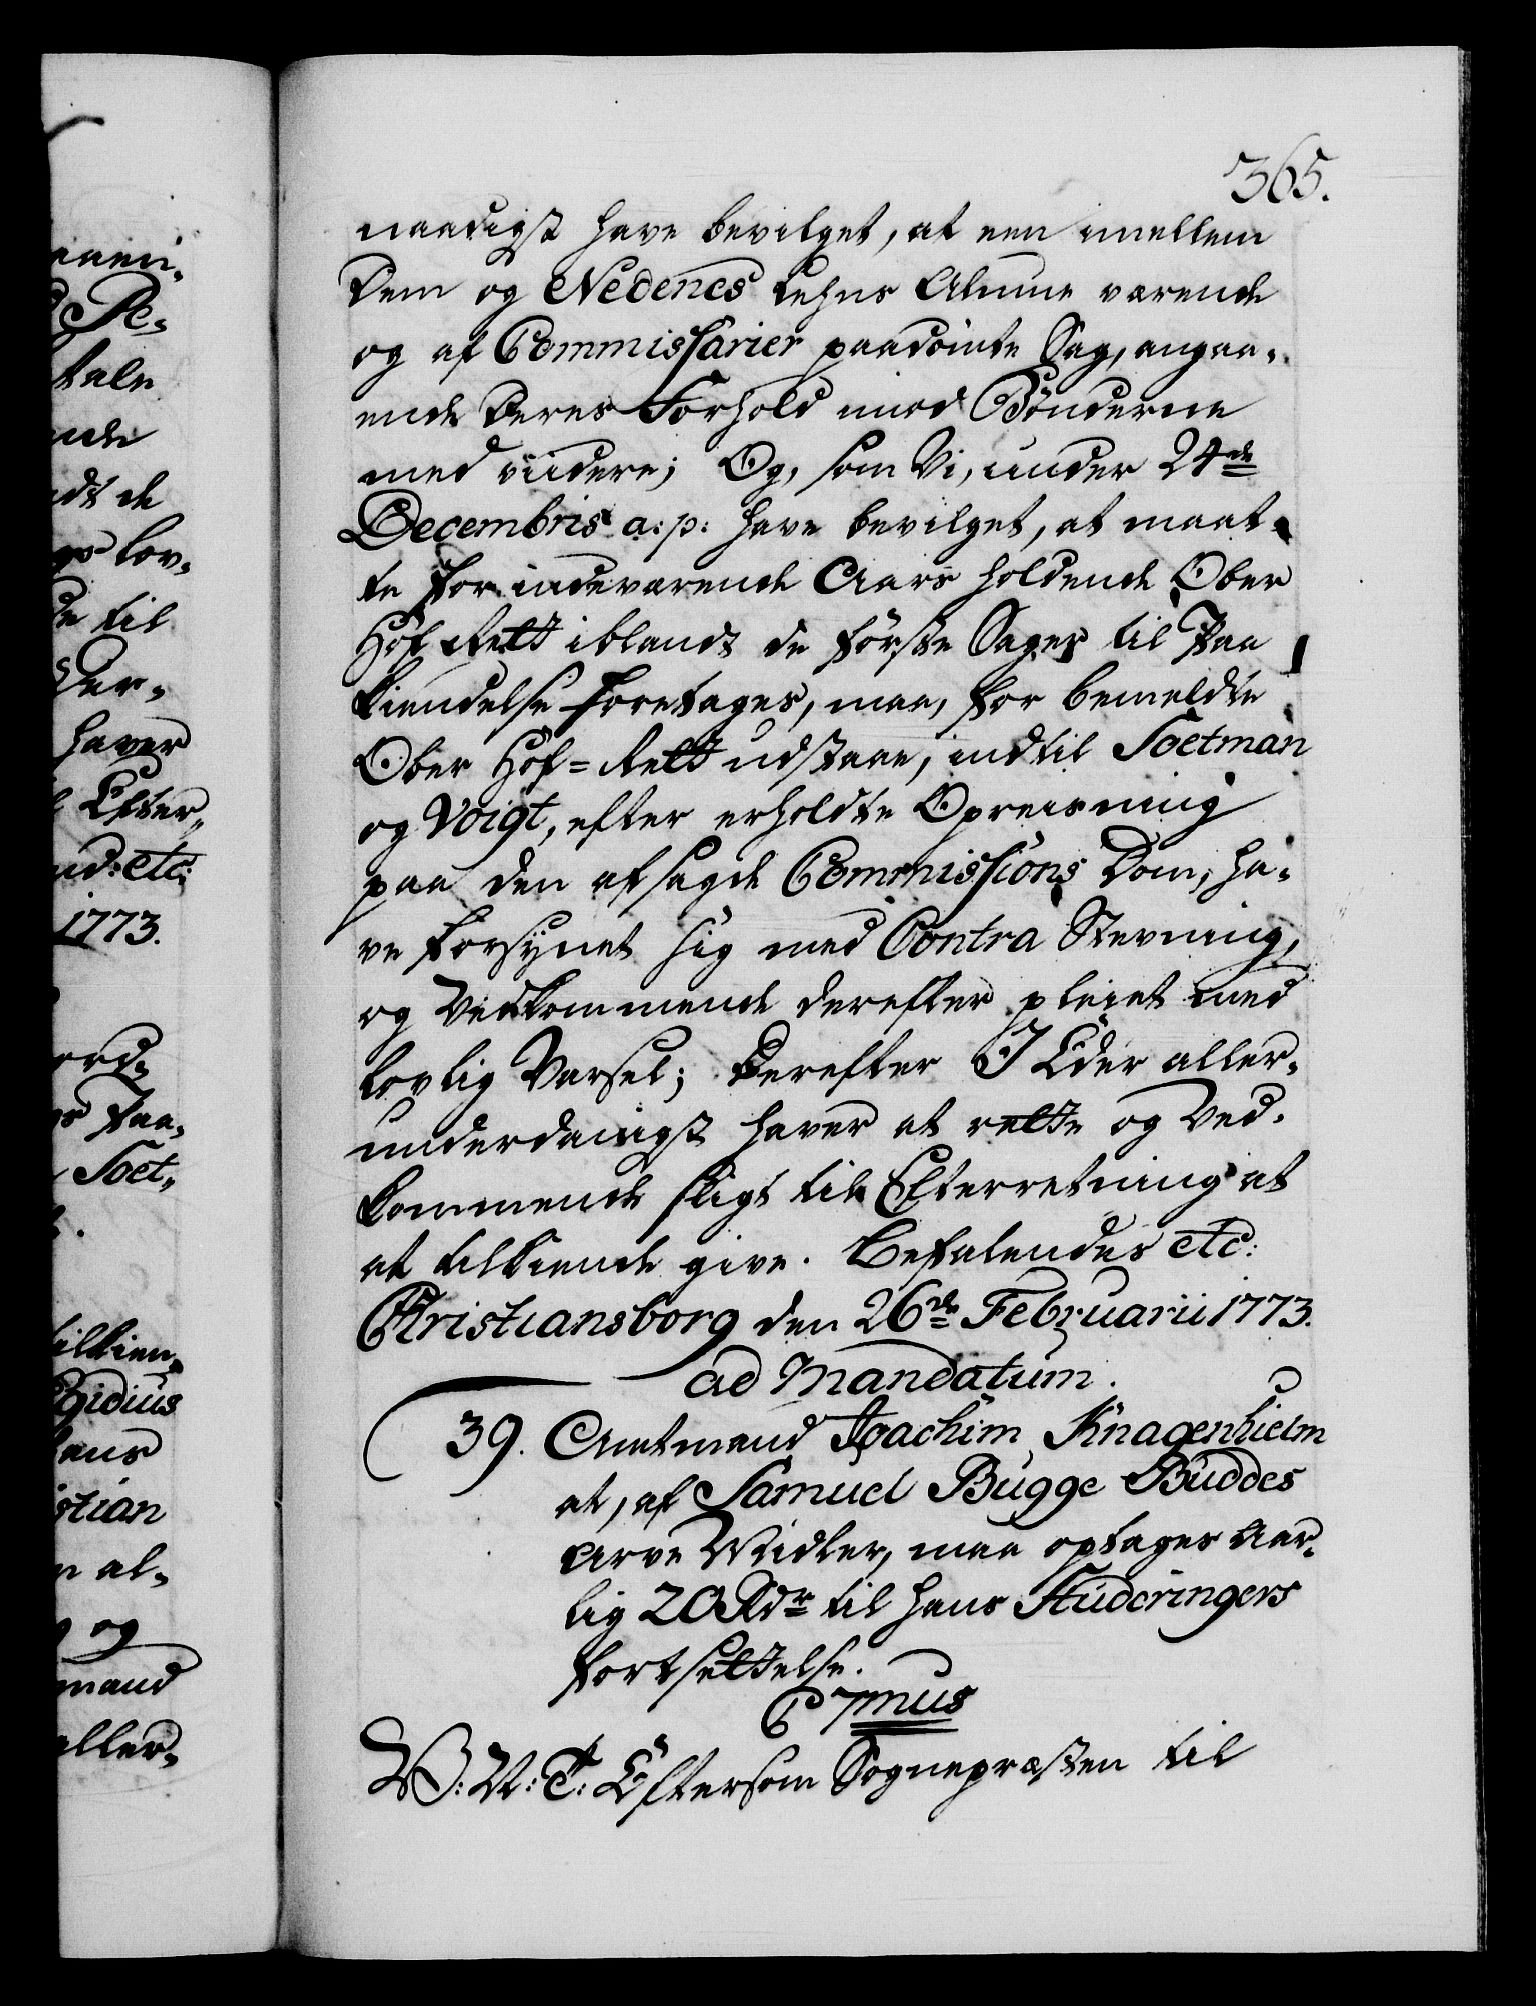 365.
naadigst have bevilget, at een imellem
Dem og Nedenes Lehns Almue værende
og af Commissarier paadömte Sag, angaa-
ende Deres Forhold imod Bönderne
med viidere; Og, som Vi, under 24de
Decembris a: p: have bevilget, at maat-
te for indeværende Aars holdende Ober
Hof Rett iblandt de förste Sager til Paa
kiendelse foretages, maa, for bemeldte
Ober Hof-Rett udstaae, indtil Soetman
og Voigt, efter erholdte Opreisning
paa den afsagde Commissions Dom, ha-
ve forsynet sig med Contra Stevning,
og Vedkommende derefter pleiet med
lovlig Varsel; Derefter I Eder aller-
underdanigst haver at rette og Ved-
kommende sligt til Efterretning at
at tilkiende give. Befalendes etc:
Christiansborg den 26de Februarii 1773.
ad Mandatum.
39. Amtmand Joachim Knagenhielm
at, af Samuel Bugge Buddes
Arve Midler, maa optages Aar-
lig 20 Rdr til hans Studeringers
fortsettelse.
C 7mus
W: N: T: Eftersom Sognepræsten til
eeen-
Re-
tale
nde
ndt de
lov-
de til
Der-
haver
Efter-
ud: etc:
1773.
ord-
Paa-
Soet-
tilkien-
gidius
hans
stian
al-
og
mand
aller-